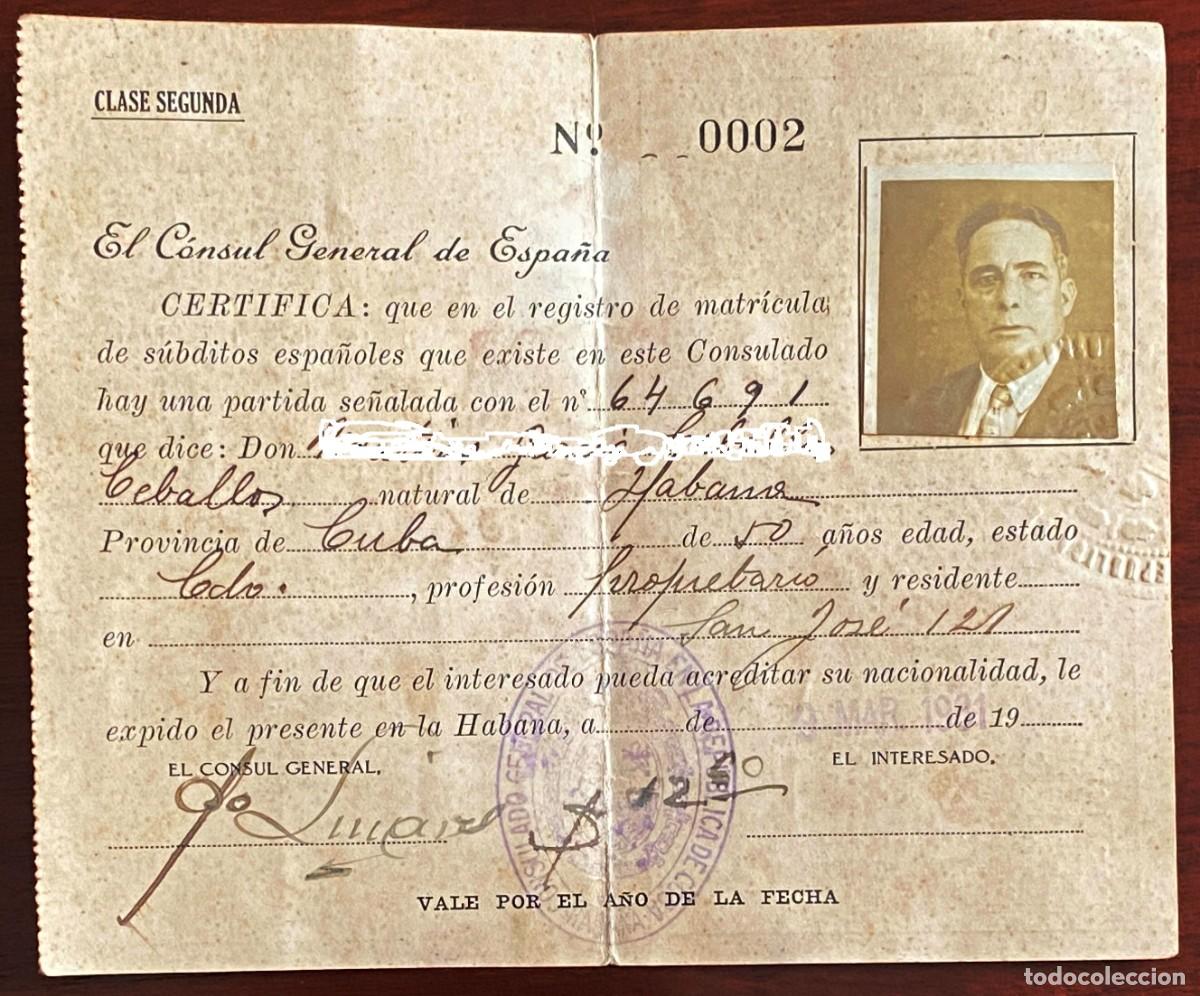 CLASE SEGUNDA
Nº 0002
El Cónsul General de España
CERTIFICA: que en el registro de matrícula
de súbditos españoles que existe en este Consulado
hay una partida señalada con el nº 64691
que dice: Don
Ceballos natural de Habana
Provincia de Cuba de 50 años edad, estado
Cdo. , profesión Propietario y residente
en San José 121
Y a fin de que el interesado pueda acreditar su nacionalidad, le
expido el presente en la Habana, a de MAR de 19
EL CONSUL GENERAL,
EL INTERESADO.
VALE POR EL AÑO DE LA FECHA
todocoleccion